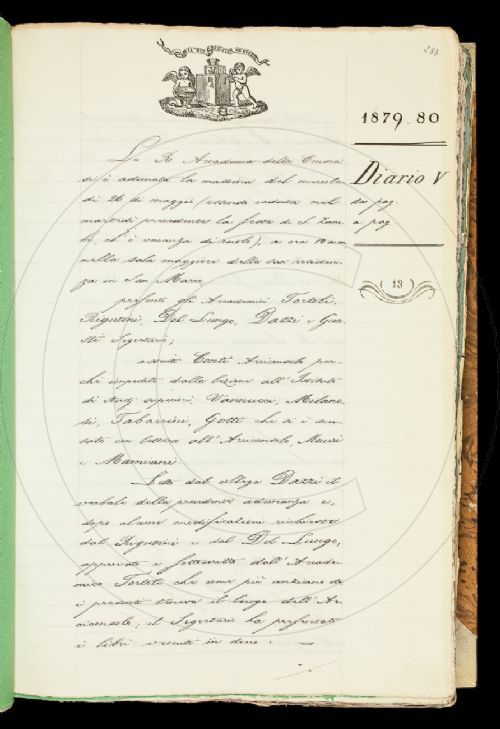 233
1879-80
Diario V
da pag.
a pag.
13
La R. Accademia della Crusca
si è adunata la mattina del mercole
di 26 di maggio (essendo caduta nel
martedì precedente la festa di S. Zano
bi, ch'è vacanza di ruolo), a ore 10 am
nella sala maggiore della sua residen
za in San Marco
presenti gli Accademici Tortoli,
Rigutini, Del Lungo, Dazzi e Gua
sti Segretario;
assente Conti Arciconsolo per
chè impedito dalla lezione all'Istituto
di studj superiori Vannucci, Milane
si, Tabarrini, Gotti che si è scu
sato con lettera all'Arciconsolo, Mauri
e Mamiani
Letto dal collega Dazzi il
verbale della precedente adunanza e,
dopo alcune modificazioni richieste
dal Rigutini e dal Del Lungo,
approvato e sottoscritto dall'Accade
mico Tortoli che come più anziano de
i presenti teneva il luogo dell'Ar
ciconsolo; il Segretario ha presentato
i libri venuti in dono: